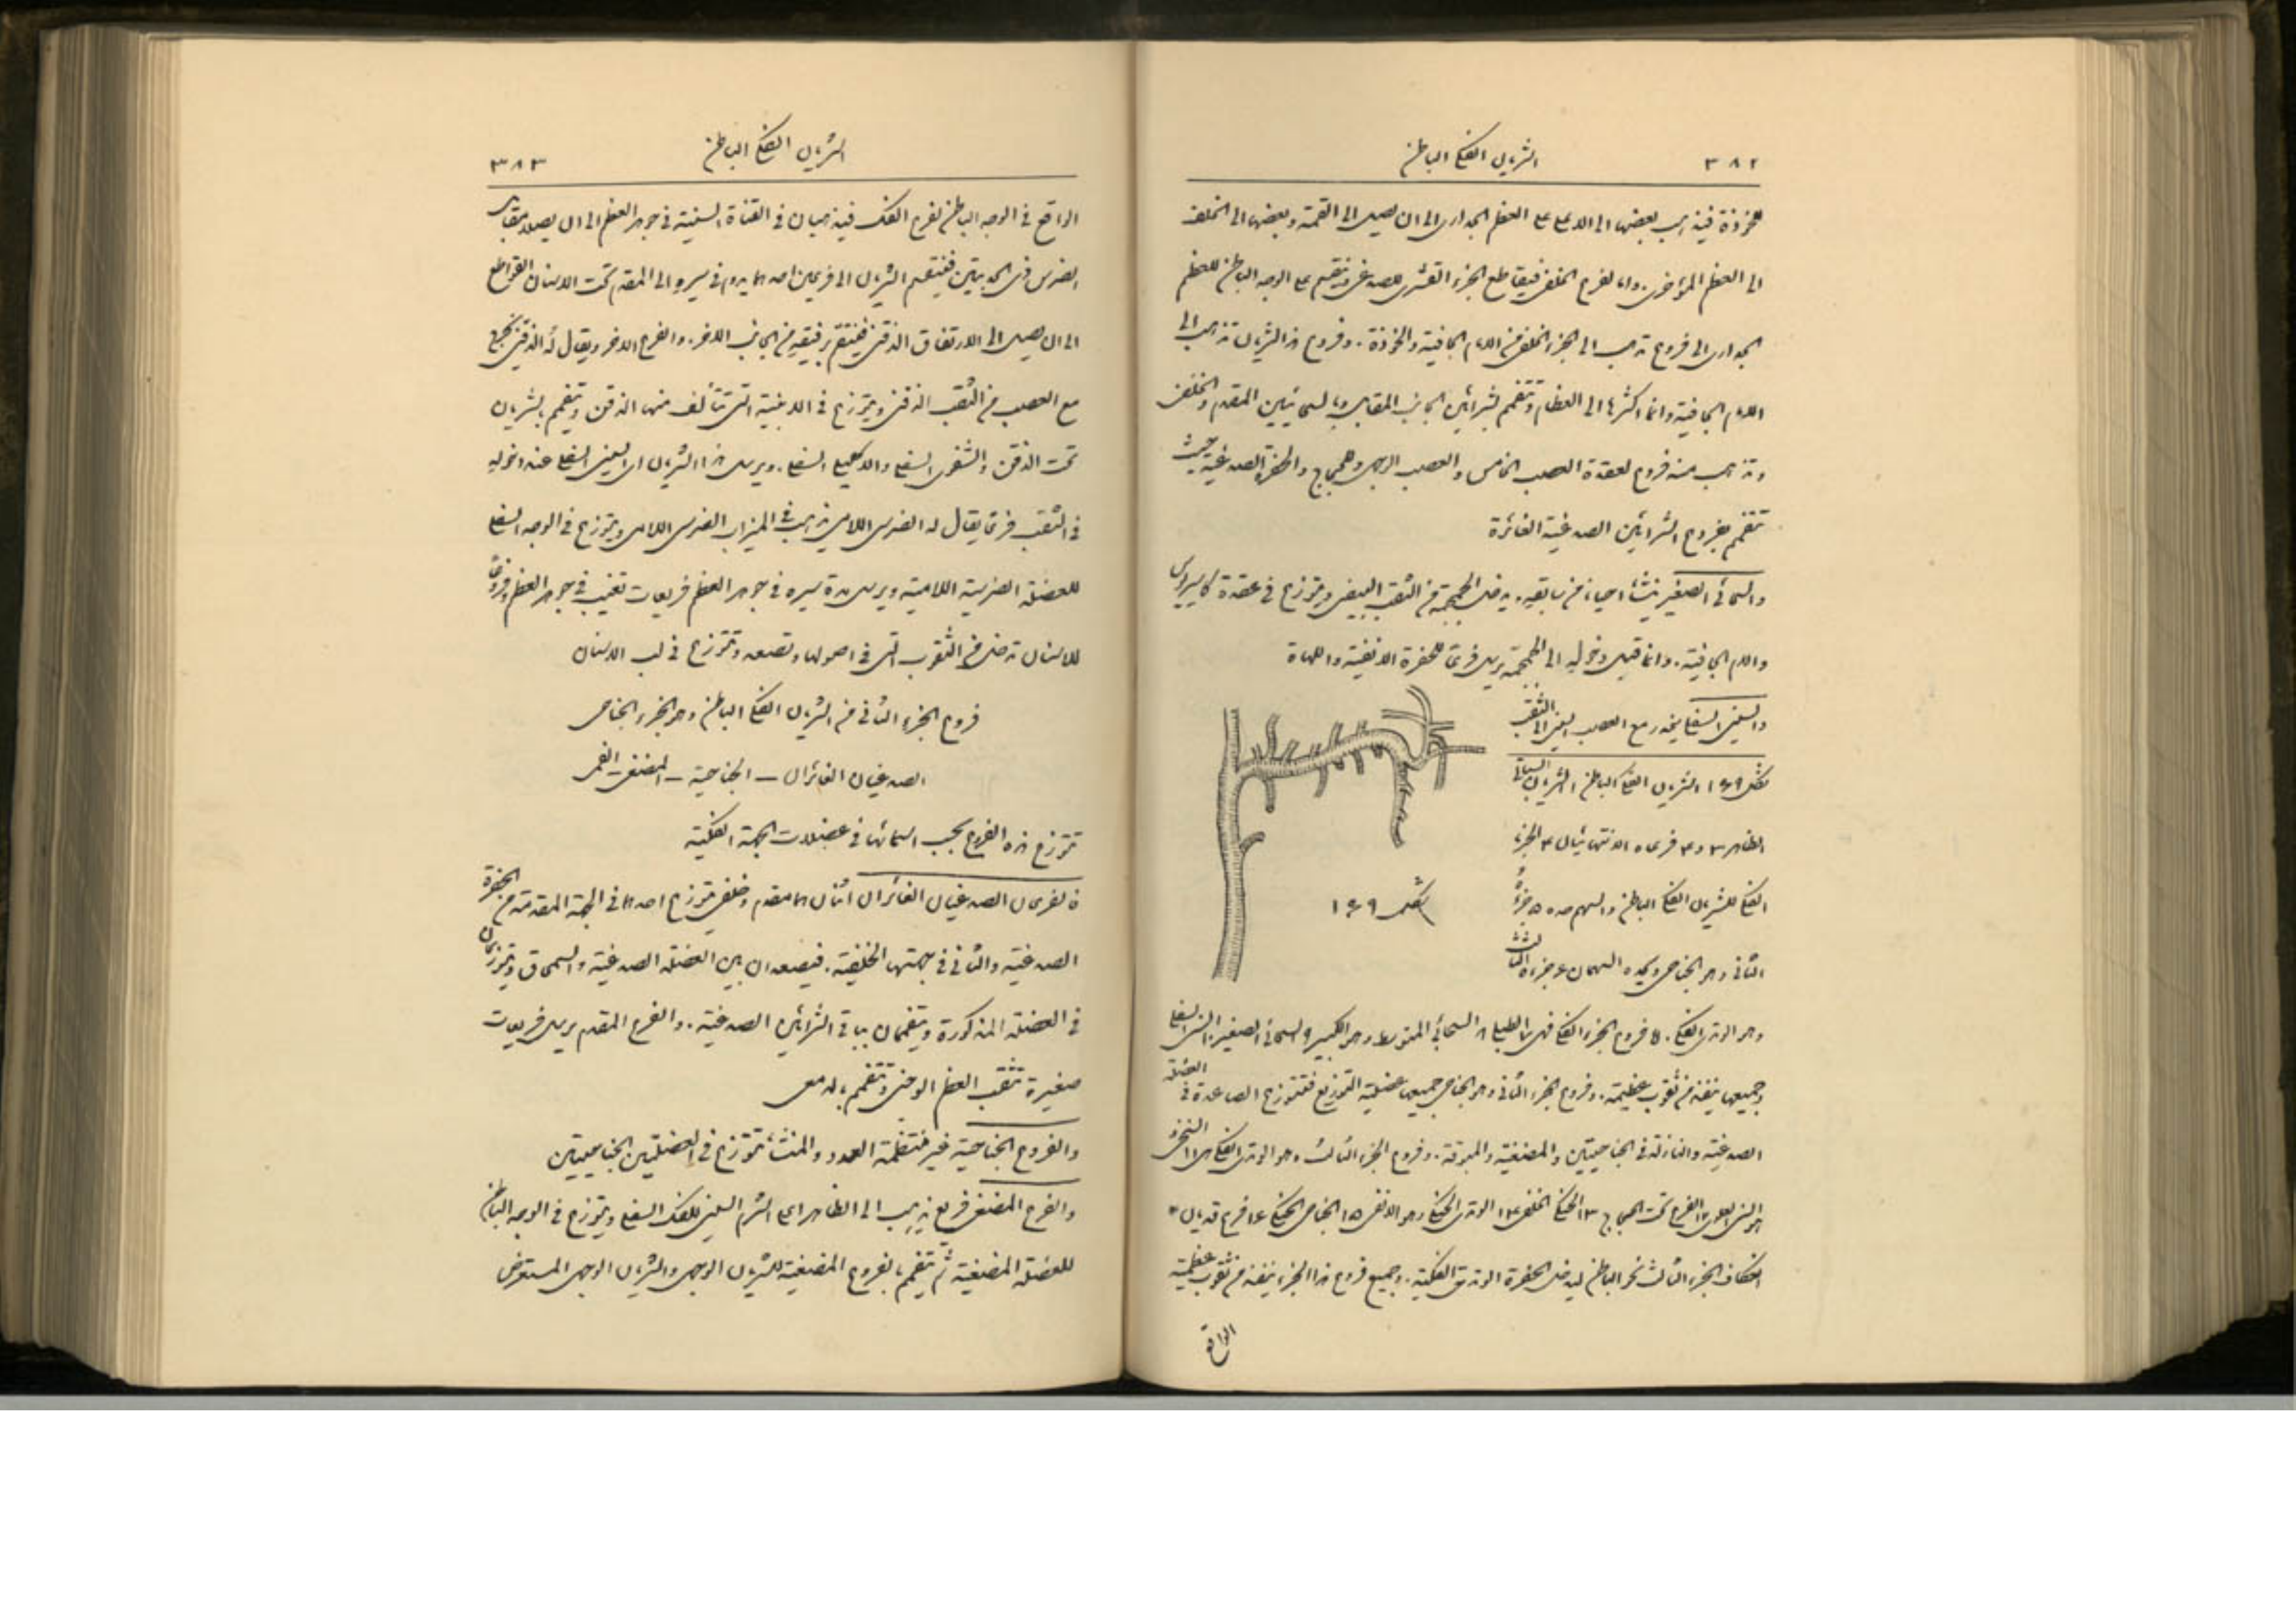 ٣٨٢
الشريان الفكي الباطن
للخوذة فيذهب بعضها الى الاعلى على العظم الجداري الى ان يصل الى القمة وبعضها الى الخلف
الى العظم المؤخري. واما الفرع الخلفي فيقاطع الجزء القشري للصدغي وينقسم على الوجه الباطن للعظم
الجداري الى فروع تذهب الى الجزء الخلفي من الام الجافية والخوذة. وفروع هذا الشريان تذهب الى
الام الجافية وانما اكثرها الى العظام وتتفمم بشرائين الجانب المقابل وبالسحائيين المقدم والخلفي
وتذهب منه فروع لعقدة العصب الخامس والعصب الوجهي وللحجاج والحفرة الصدغية حيث
تتفمم بفروع الشرائين الصدغية الغائرة
والسحائي الصغير ينشأ احياناً من سابقه. يدخل الجمجمة من الثقب البيضي ويتوزع في عقدة كاسيروس
والام الجافية. وانما قبل دخوله الى الجمجمة يرسل فرعاً للحفرة الانفية واللهاة
والسني السفلي ينحدر مع العصب السني الى الثقب
شكل ١٤٩ الشريان الفكي الباطن ١ الشريان السباتي
الظاهر ٢ و ٣ فرعاه الانتهائيان ٤ الجزء
الفكي للشريان الفكي الباطن والسهم حده ٥ جزؤه
الثاني وهو الجناحي ويحده السهمان ٦ جزءه الثالث
شكل ١٤٩
وهو الوتدي الفكي. اما فروع الجزء الفكي فهي ٧ الطبلي ٨ السحائي المتوسط وهو الكبير ٩ السحائي الصغير ١٠ السني السفلي
وجميعها ينفذ من ثقوب عظيمة. وفروع الجزء الثاني وهو الجناحي جميعها عضلية التوزيع فتتوزع الصاعدة في العضلة
الصدغية والنازلة في الجناحيتين والمضغية والمبوقة. وفروع الجزء الثالث وهو الوتدي الفكي هي ١١ السنخي
او السني العلوي ١٢ الفرع تحت الحجاج ١٣ الحنكي الخلفي ١٤ الوتدي الحنكي وهو الانفي ١٥ الجناحي الحنكي ١٦ فرع قديان *
انعكاف الجزء الثالث نحو الباطن ليدخل الحفرة الوتدية الفكية. وجميع فروع هذا الجزء ينفذ من ثقوب عظمية
الواقع
الشريان الفكي الباطن
٣٨٣
الواقع في الوجه الباطن لفرع الفك فيذهبان في القناة السنية في جوهر العظم الى ان يصلا مقابل
الضرس ذي الحدبتين فينقسم الشريان الى فرعين احدهما يدوم في سيره الى المقدم تحت الاسنان القواطع
الى ان يصل الى الارتفاق الذقني فيتفمم برفيقه من الجانب الاخر. والفرع الاخر ويقال له الذقني يخرج
مع العصب من الثقب الذقني ويتوزع في الابنية التي تتألف منها الذقن ويتفمم بشريان
تحت الذقن والشفوي السفلي والاكليلي السفلي. ويرسل هذا الشريان اي السني السفلي عند دخوله
في الثقب فرعاً يقال له الضرسي اللامي يذهب في الميزاب الضرسي اللامي ويتوزع في الوجه السفلي
للعضلة الضرسية اللامية ويرسل مدة سيره في جوهر العظم فريعات تغيب في جوهر العظم وفروعاً
للاسنان تدخل في الثقوب التي في اصولها وتصعد وتتوزع في لب الاسنان
فروع الجزء الثاني من الشريان الفكي الباطن وهو الجزء الجناحي
الصدغيان الغائران – الجناحية – المضغي – الفمي
تتوزع هذه الفروع بحسب اسمائها في عضلات الجهة الفكية
فالفرعان الصدغيان الغائران اثنان هما مقدم وخلفي يتوزع احدهما في الجهة المقدمة من الحفرة
الصدغية والثاني في جهتها الخلفية. فيصعدان بين العضلة الصدغية والسمحاق ويتوزعان
في العضلة المذكورة ويتفممان بباقي الشرائين الصدغية. والفرع المقدم يرسل فريعات
صغيرة تثقب العظم الوجني وتتفمم بالدمعي
والفروع الجناحية غير منتظمة العدد والمنشأ تتوزع في العضلتين الجناحيتين
والفرع المضغي فريع يذهب الى الظاهر اعلى الشرم السيني للفك السفلي ويتوزع في الوجه الباطن
للعضلة المضغية ثم يتفمم بالفروع المضغية للشريان الوجهي والشريان الوجهي المستعرض